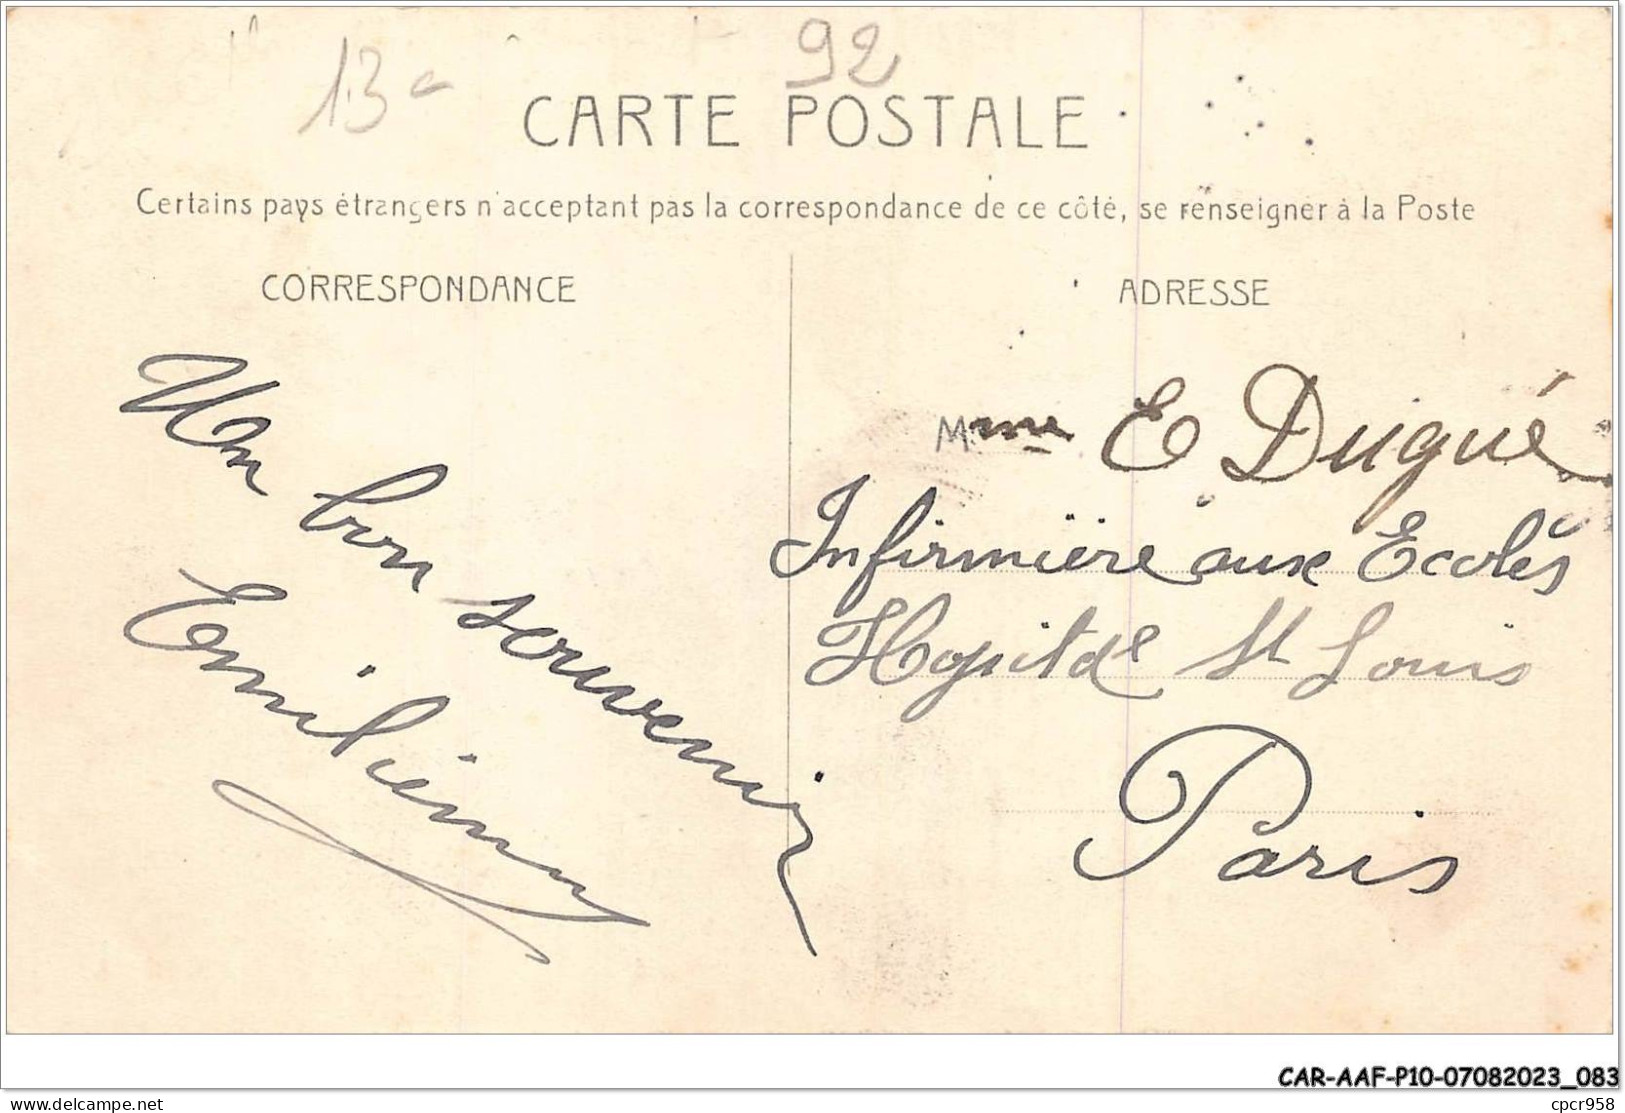 13
92
CARTE POSTALE
Certains pays étrangers n'acceptant pas la correspondance de ce côté, se renseigner à la Poste
CORRESPONDANCE
Un bon souvenir
Emilienne
ADRESSE
Mme E Dugué
Infirmière aux Ecoles
Hopital St Louis
Paris
CAR-AAF-P10-07082023_083
delcampe.net
cpcr958